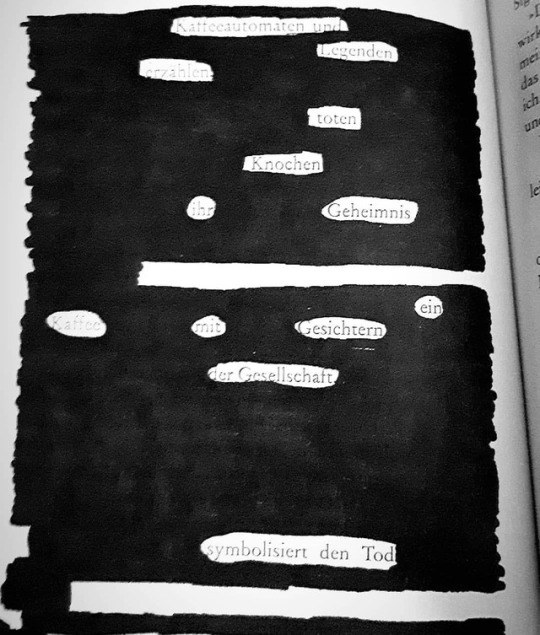 Kaffeeautomaten und
Legenden
erzählen
toten
Knochen
ihr Geheimnis
ein
Kaffee mit Gesichtern
der Gesellschaft
symbolisiert den Tod